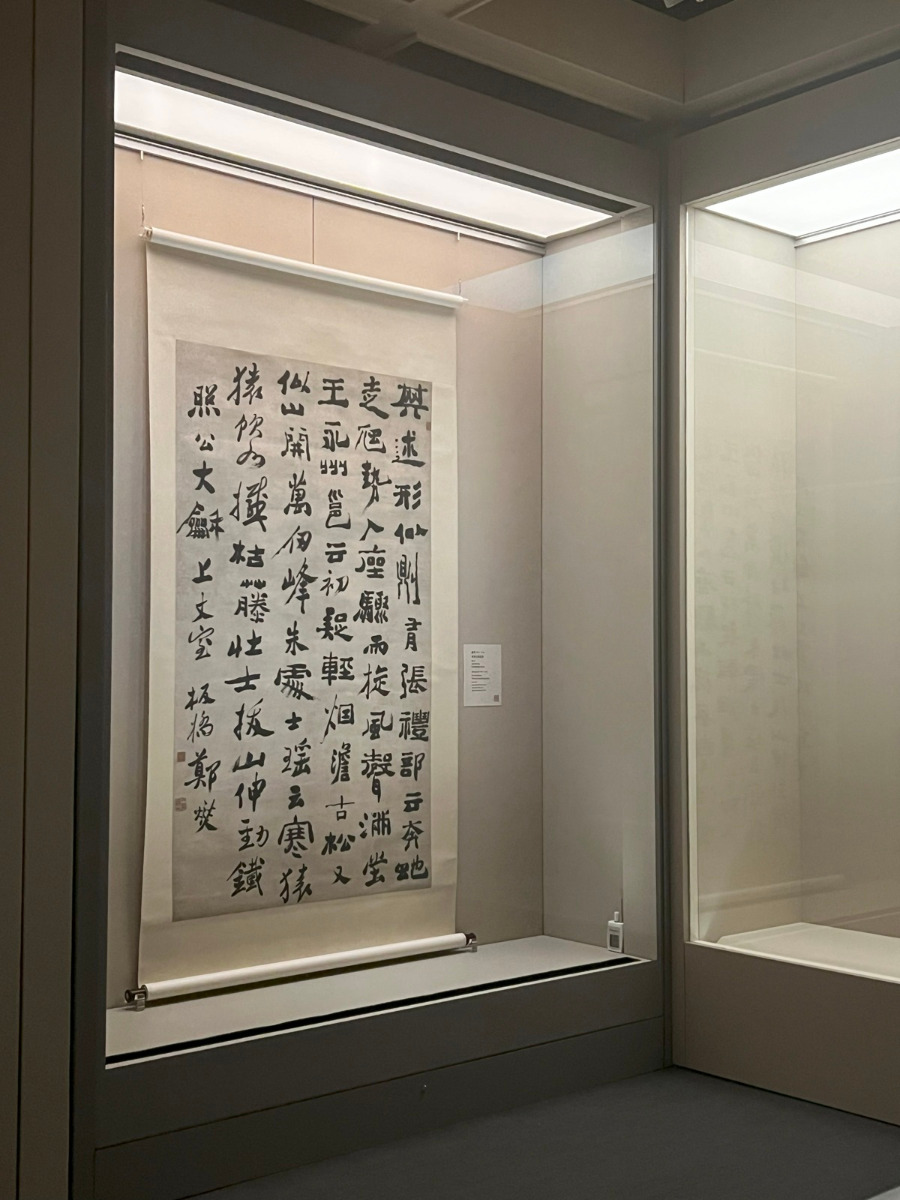 其述形似則有張禮部云奔虵
走虺勢入座驟雨旋風聲滿堂
王永州邕云初疑輕烟澹古松又
似山開萬仞峰朱處士瑶云寒猿
猿飲水撼枯藤壯士拔山伸勁鐵
照公大龢上丈室 板橋鄭燮